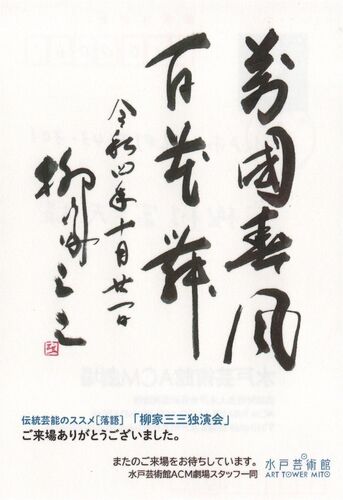 萬國春風
百花舞
令和四年十月廿一日
柳家三三
伝統芸能のススメ[落語] 「柳家三三独演会」
ご来場ありがとうございました。
またのご来場をお待ちしています。
水戸芸術館ACM劇場スタッフ一同
水戸芸術館
ART TOWER MITO